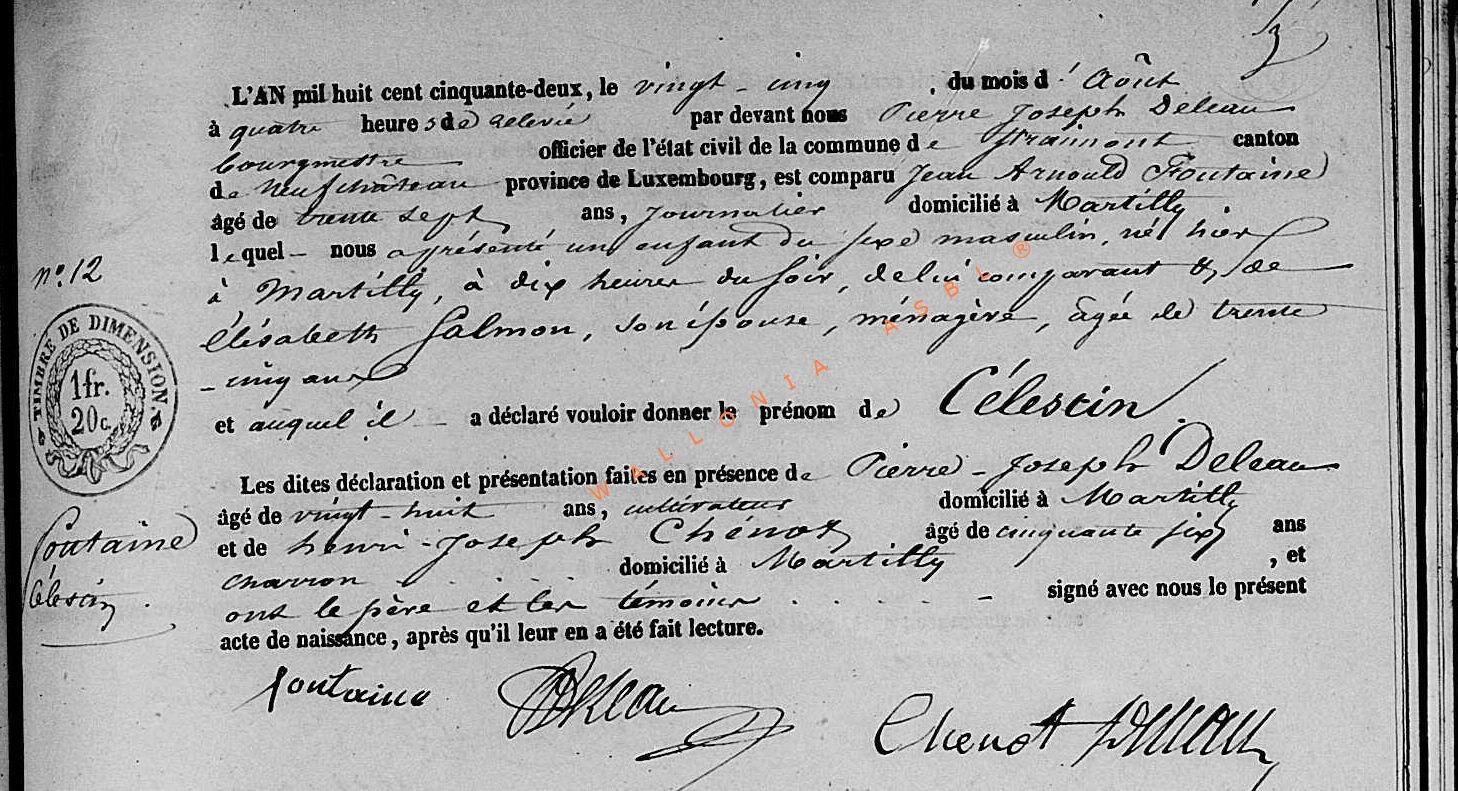 L'AN mil huit cent cinquante-deux, le vingt-cinq, du mois d'Août
à quatre heures de relevée par devant nous Pierre Joseph Deleau
bourgmestre officier de l'état civil de la commune de Straimont canton
de Neufchâteau province de Luxembourg, est comparu Jean Arnould Fontaine
âgé de trente sept ans, Journalier domicilié à Martilly
lequel nous a présenté un enfant du sexe masculin, né hier
à Martilly, à dix heures du soir, de lui comparant & de
Élisabeth Salmon, son épouse, ménagère, âgée de trente
-cinq ans
et auquel il a déclaré vouloir donner le prénom de Célestin.
Les dites déclaration et présentation faites en présence de Pierre-Joseph Deleau
âgé de vingt-huit ans, cultivateur domicilié à Martilly
et de henri-Joseph Chénot âgé de cinquante six ans
charron domicilié à Martilly, et
ont le père et les témoins signé avec nous le présent
acte de naissance, après qu'il leur en a été fait lecture.
fontaine Deleau
Chenot Deleau
n° 12
TIMBRE DE DIMENSION
1fr.
20c.
Fontaine
Célestin.
WALLONIA ASBL ®